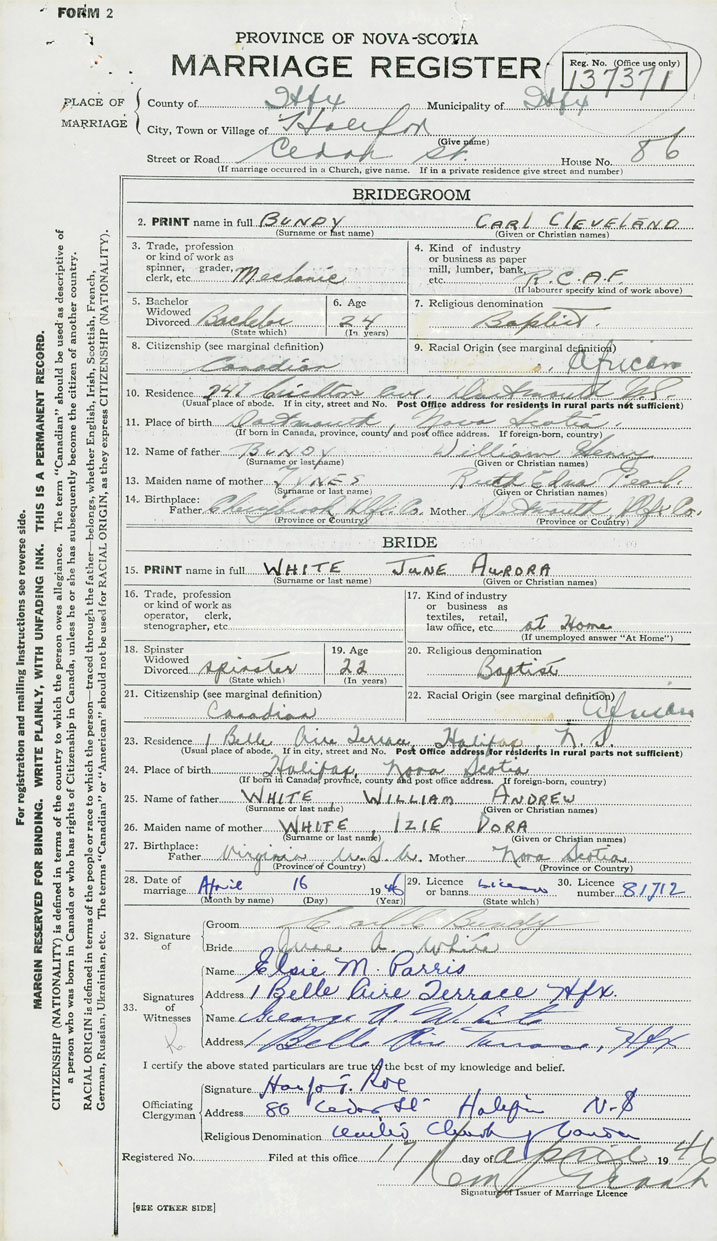 FORM 2
PROVINCE OF NOVA-SCOTIA
MARRIAGE REGISTER
Reg. No. (Office use only)
137371
PLACE OF MARRIAGE
County of Hfx Municipality of Hfx
City, Town or Village of Halifax
(Give name)
Street or Road Cedar St. House No. 86
(If marriage occurred in a Church, give name. If in a private residence give street and number)
BRIDEGROOM
2. PRINT name in full BUNDY CARL CLEVELAND
(Surname or last name) (Given or Christian names)
3. Trade, profession or kind of work as spinner, grader, clerk, etc. Mechanic
4. Kind of industry or business as paper mill, lumber, bank, etc. R.C.A.F.
(If labourer specify kind of work above)
5. Bachelor Widowed Divorced Bachelor
(State which)
6. Age 24
(In years)
7. Religious denomination Baptist.
8. Citizenship (see marginal definition) Canadian
9. Racial Origin (see marginal definition) African
10. Residence 247 Ave. Dartmouth N.S.
(Usual place of abode. If in city, street and No. Post Office address for residents in rural parts not sufficient)
11. Place of birth Dartmouth, Nova Scotia.
(If born in Canada, province, county and post office address. If foreign-born, country)
12. Name of father BUNDY William Henry
(Surname or last name) (Given or Christian names)
13. Maiden name of mother TYNES Ruth Edna Pearl.
(Surname or last name) (Given or Christian names)
14. Birthplace: Father Hfx. Co. Mother Dartmouth, Hfx Co.
(Province or Country) (Province or Country)
BRIDE
15. PRINT name in full WHITE JUNE AURORA
(Surname or last name) (Given or Christian names)
16. Trade, profession or kind of work as operator, clerk, stenographer, etc.
17. Kind of industry or business as textiles, retail, law office, etc. at Home
(If unemployed answer "At Home")
18. Spinster Widowed Divorced spinster
(State which)
19. Age 22
(In years)
20. Religious denomination Baptist
21. Citizenship (see marginal definition) Canadian
22. Racial Origin (see marginal definition) African
23. Residence 1 Belle Aire Terrace, Halifax, N.S.
(Usual place of abode. If in city, street and No. Post Office address for residents in rural parts not sufficient)
24. Place of birth Halifax, Nova Scotia
(If born in Canada, province, county and post office address. If foreign-born, country)
25. Name of father WHITE WILLIAM ANDREW
(Surname or last name) (Given or Christian names)
26. Maiden name of mother WHITE, IZIE DORA
(Surname or last name) (Given or Christian names)
27. Birthplace: Father Virginia U.S.A. Mother Nova Scotia
(Province of Country) (Province or Country)
28. Date of marriage April 16 1946
(Month by name) (Day) (Year)
29. Licence or banns License
(State which)
30. Licence number 81712
32. Signature of
Groom Carl C. Bundy
Bride June A. White
33. Signatures of Witnesses
Name Elsie M. Parris
Address 1 Belle Aire Terrace Hfx.
Name George A. White
Address Belle Aire Terrace, Hfx
I certify the above stated particulars are true to the best of my knowledge and belief.
Officiating Clergyman
Signature
Address 86 Cedar St Halifax N-S
Religious Denomination United Church of Canada
Registered No. Filed at this office 17 day of April 1946
Signature of Issuer of Marriage Licence
[SEE OTHER SIDE]
For registration and mailing instructions see reverse side.
MARGIN RESERVED FOR BINDING. WRITE PLAINLY, WITH UNFADING INK. THIS IS A PERMANENT RECORD.
CITIZENSHIP (NATIONALITY) is defined in terms of the country to which the person owes allegiance. The term "Canadian" should be used as descriptive of
a person who was born in Canada or who has rights of Citizenship in Canada, unless he or she has subsequently become the citizen of another country.
RACIAL ORIGIN is defined in terms of the people or race to which the person—traced through the father—belongs, whether English, Irish, Scottish, French,
German, Russian, Ukrainian, etc. The terms "Canadian" or "American" should not be used for RACIAL ORIGIN, as they express CITIZENSHIP (NATIONALITY).